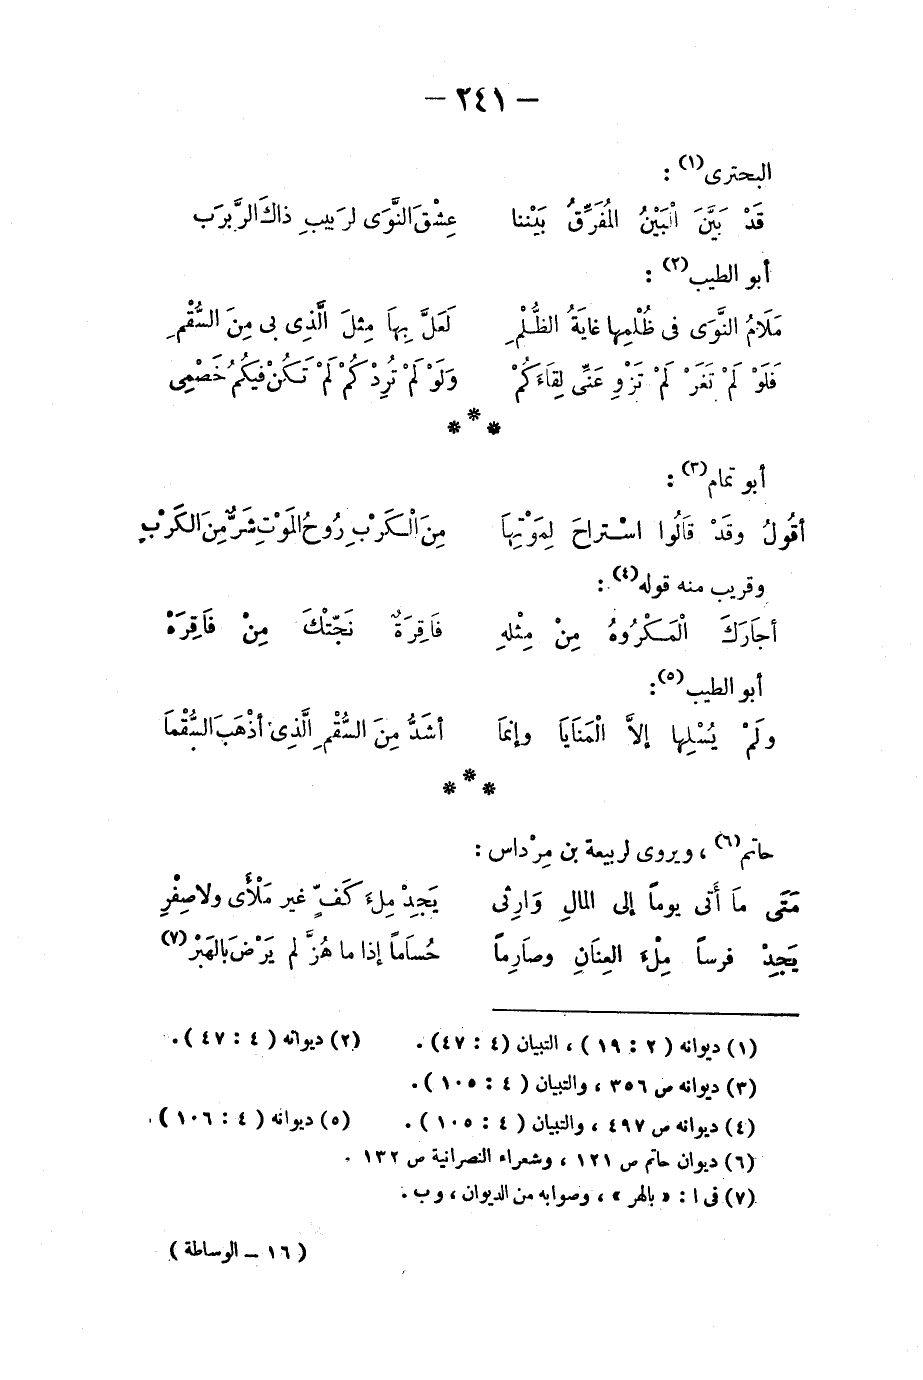 — ٢٤١ —
البحترى(١) :
قَدْ بَيَّنَ الْبَيْنُ المُفَرِّقُ بَيْننا عِشْقَ النَّوَى لرَبيبِ ذاكَ الرَّبرَب
أبو الطيب(٢) :
مَلَامُ النَّوَى فى ظُلْمِها غايَةُ الظُّلْمِ لَعَلَّ بِهاَ مِثلَ الَّذِى بى مِنَ السُّقْمِ
فَلَوْ لَمْ تَغَرْ لَمْ تَزْوِ عَنِّى لِقاَءَكُمْ وَلَوْ لَمْ تُرِدْكُمْ لَمْ تَكُنْ فيكُمُ خَصْمِى
* * *
أبو تمام(٣) :
أقُولُ وقَدْ قَالُوا اسْتراحَ لِمَوْتِهاَ مِنَ الْكَرْبِ رُوحُ المَوْتِ شَرٌّ مِنَ الكَرْبِ
وقريب منه قوله(٤) :
أجاَرَكَ الْمَكْرُوهُ مِنْ مِثْلهِ فاَقِرَةٌ نَجّتْكَ مِنْ فاَقِرَهْ
أبو الطيب(٥) :
ولَمْ يُسْلِها إلاَّ الْمَنَاياَ وإنماَ أشَدُّ مِنَ السُّقْمِ الَّذِى أذْهَبَ السُّقْماَ
* * *
حاتم(٦) ، ويروى لربيعة بن مِرْداس :
مَتَى ماَ أَتى يوماً إلى المالِ وَارِثى يَجِدْ مِلءَ كَفٍّ غير مَلْأَى ولا صِفْرِ
يَجِدْ فرساً مِلْءَ العِنَانِ وصاَرِماً حُساَماً إذا ما هُزَّ لم يَرْضَ بالهَبْرْ(٧)
(١) ديوانه ( ٢ : ١٩ ) ، التبيان (٤ : ٤٧) . (٢) ديوانه ( ٤ : ٤٧ ) .
(٣) ديوانه ص ٣٥٦ ، والتبيان ( ٤ : ١٠٥ ) .
(٤) ديوانه ص ٤٩٧ ، والتبيان ( ٤ : ١٠٥ ) . (٥) ديوانه ( ٤ : ١٠٦ ) .
(٦) ديوان حاتم ص ١٢١ ، وشعراء النصرانية ص ١٣٢ .
(٧) فى ا : « بالهر » ، وصوابه من الديوان ، و ب .
( ١٦ — الوساطة )